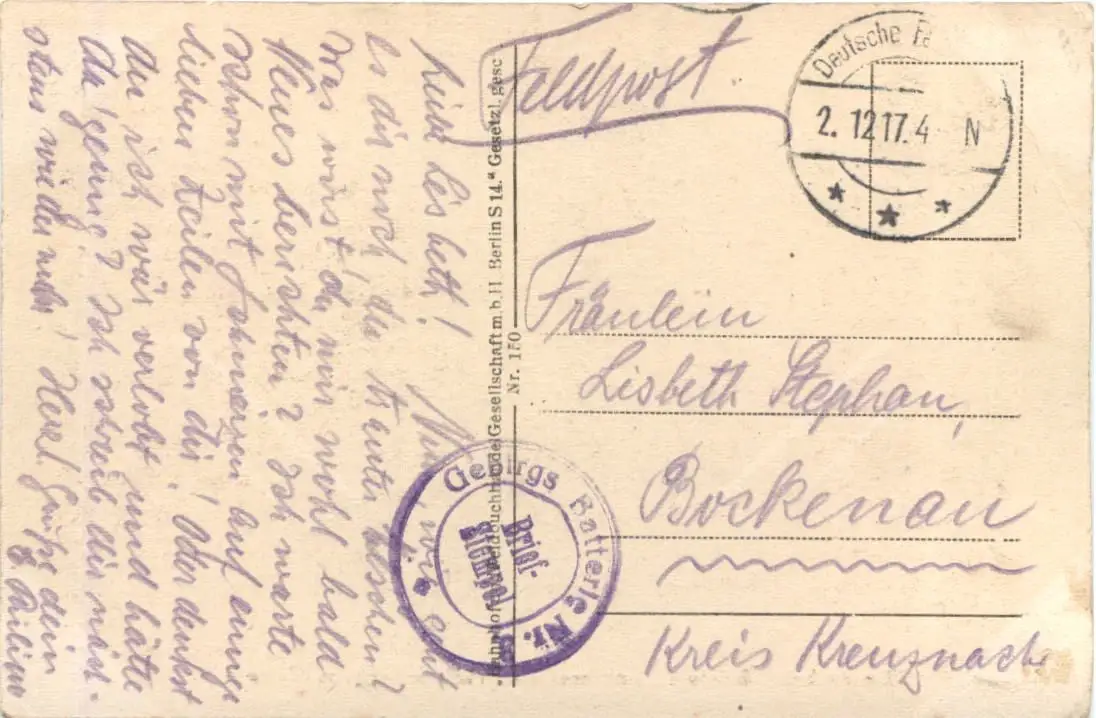 Feldpost
Deutsche
2.12.17.4 N
Fräulein
Lisbeth Stephan,
Bockenau
Kreis Kreuznach
Gebirgs Batterie Nr.
Brief-
Stempel
Bahnhofs- Gesellschaft m.b.H. Berlin S 14." Gesetzl. gesch.
Nr. 150
Liebe Lisbeth! Nun, wie geht
es dir noch, du trautes Bäschen?
Was wirst du mir wohl bald
Neues berichten? Ich warte
schon mit Schmerzen auf einige
lieben Zeilen von dir! Oder denkst
du ich wär verlobt und hätte
da genug? Ich schreib dir näch-
stens wieder mehr! Herzl. Grüße dein